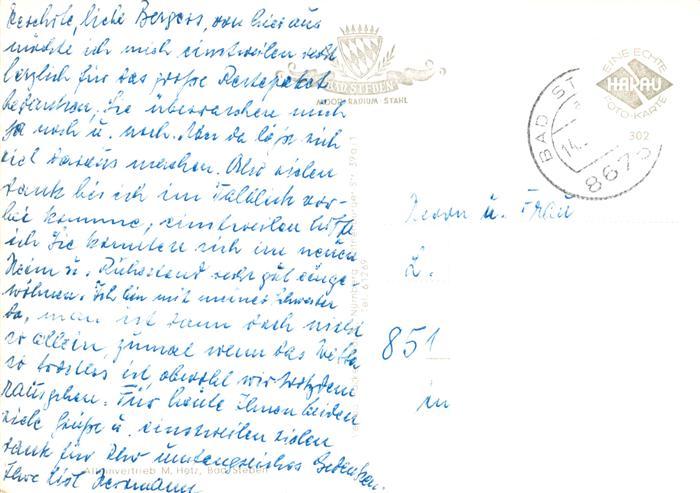 liebe Bergers, von hier aus
möchte ich mich einstweilen recht
herzlich für das große Restepaket
bedanken, Sie überraschen mich
ja noch u. noch. Aber da läßt sich
viel daraus machen. Also vielen
Dank bis ich im
komme, einstweilen hoffe
ich Sie konnten sich im neuen
Heim u. Ruhestand recht gut einge-
wöhnen. Ich bin mit meiner Schwester
da, man ist dann doch nicht
so allein, zumal wenn das Wetter
so trostlos ist obwohl wir trotzdem
rausgehen. Für heute Ihnen beiden
viele Grüße u. einstweilen vielen
Dank für Ihr Gedenken.
Ihre
BAD STEBEN
MOOR·RADIUM·STAHL
EINE ECHTE
HAKAU
FOTO-KARTE
302
BAD ST
14.
8675
Herrn u. Frau
L.
851
in
Alleinvertrieb M. Hotz, Bad Steben